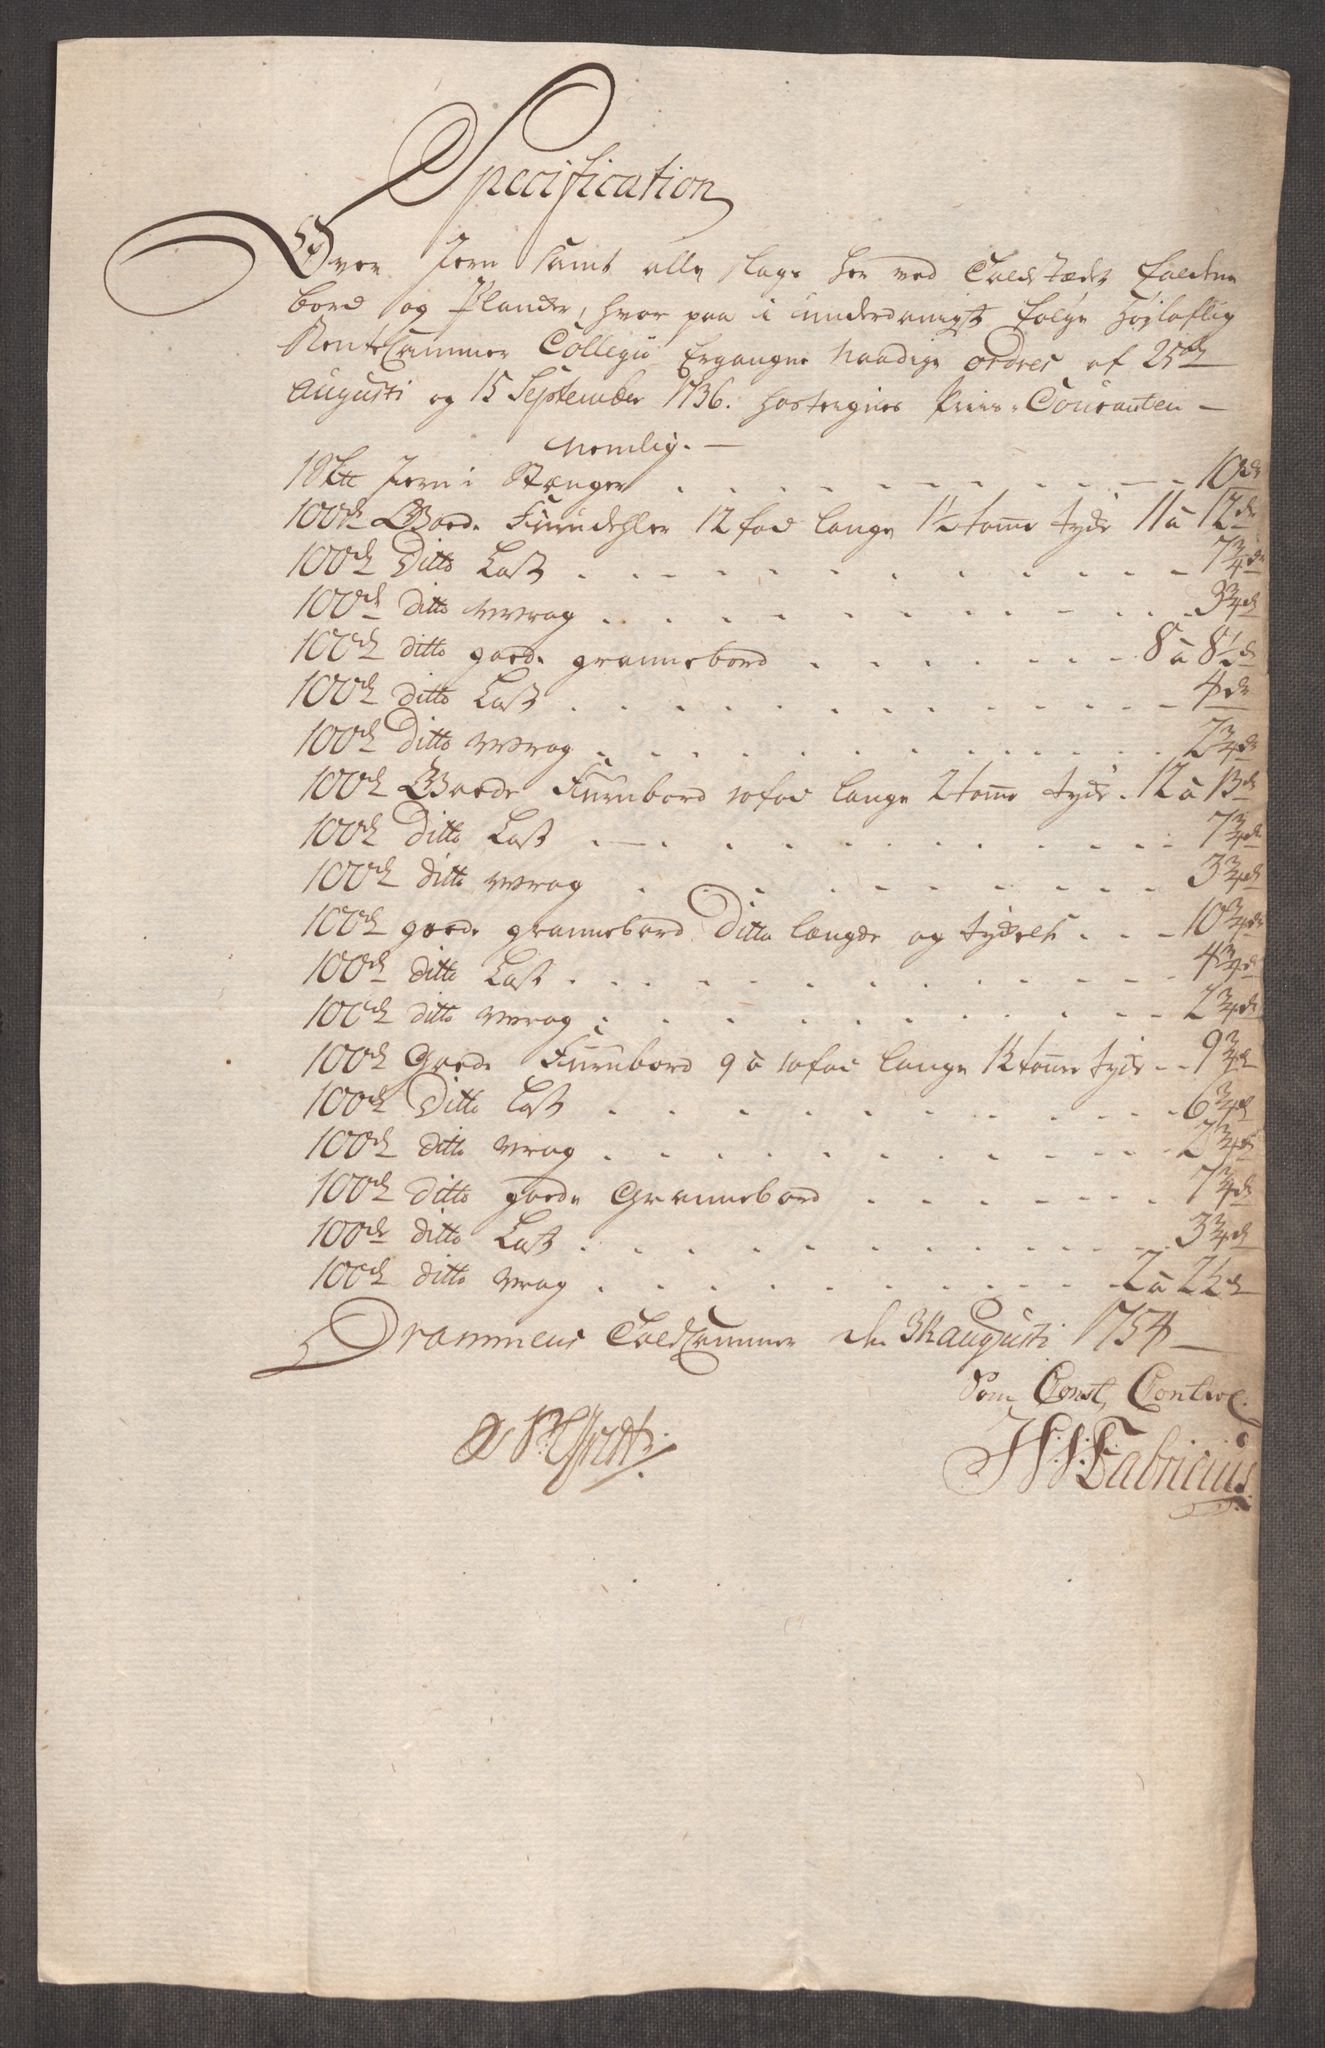 Specification
Over Jern samt alle slags her ved Toldstædet faldne
bord og Plancker, hvor paa i underdanigst følge Højloflig
RenteCammer Collegii Ergangne Naadige ordres af 25de
Augusti og 15 September 1736. hostegnes Priis-Couranten -
Nemlig. -
1 Sk℔ Jern i Stænger . . . . . . . . . 10 dr
100de Goede Furudehler 12 fod lange 1½ tomme tyde 11 a 12 dr
100de Ditto Last . . . . . . . . . 7¾ dr
100de ditto Wrag . . . . . . . . . 3¾ dr
100de ditto goede grannebord . . . . . . 8 a 8½ dr
100de ditto Last . . . . . . . . . 4 dr
100de ditto Wrag . . . . . . . . . 2¾ dr
100de Goede Furubord 10 fod lange 2 tomme tyde . 12 a 13 dr
100de ditto Last . . . . . . . . . 7¾ dr
100de ditto Wrag . . . . . . . . . 3¾ dr
100de goede grannebord Ditto længde og tydelse . . . 10¾ dr
100de ditto Last . . . . . . . . . 4¾ dr
100de ditto Wrag . . . . . . . . . 2¾ dr
100de Goede Furubord 9 a 10 fod lange 1½ tomme tyde . . 9¾ dr
100de Ditto Last . . . . . . . . . 6¾ dr
100de ditto Wrag . . . . . . . . . 2¾ dr
100de ditto goede Grannebord . . . . . . . 7¾ dr
100de ditto Last . . . . . . . . . 3¾ dr
100de ditto Wrag . . . . . . . . . 2 a 2½ dr
Drammens ToldCammer den 31 Augusti 1754
Som Const, Control.
H: Fabricius